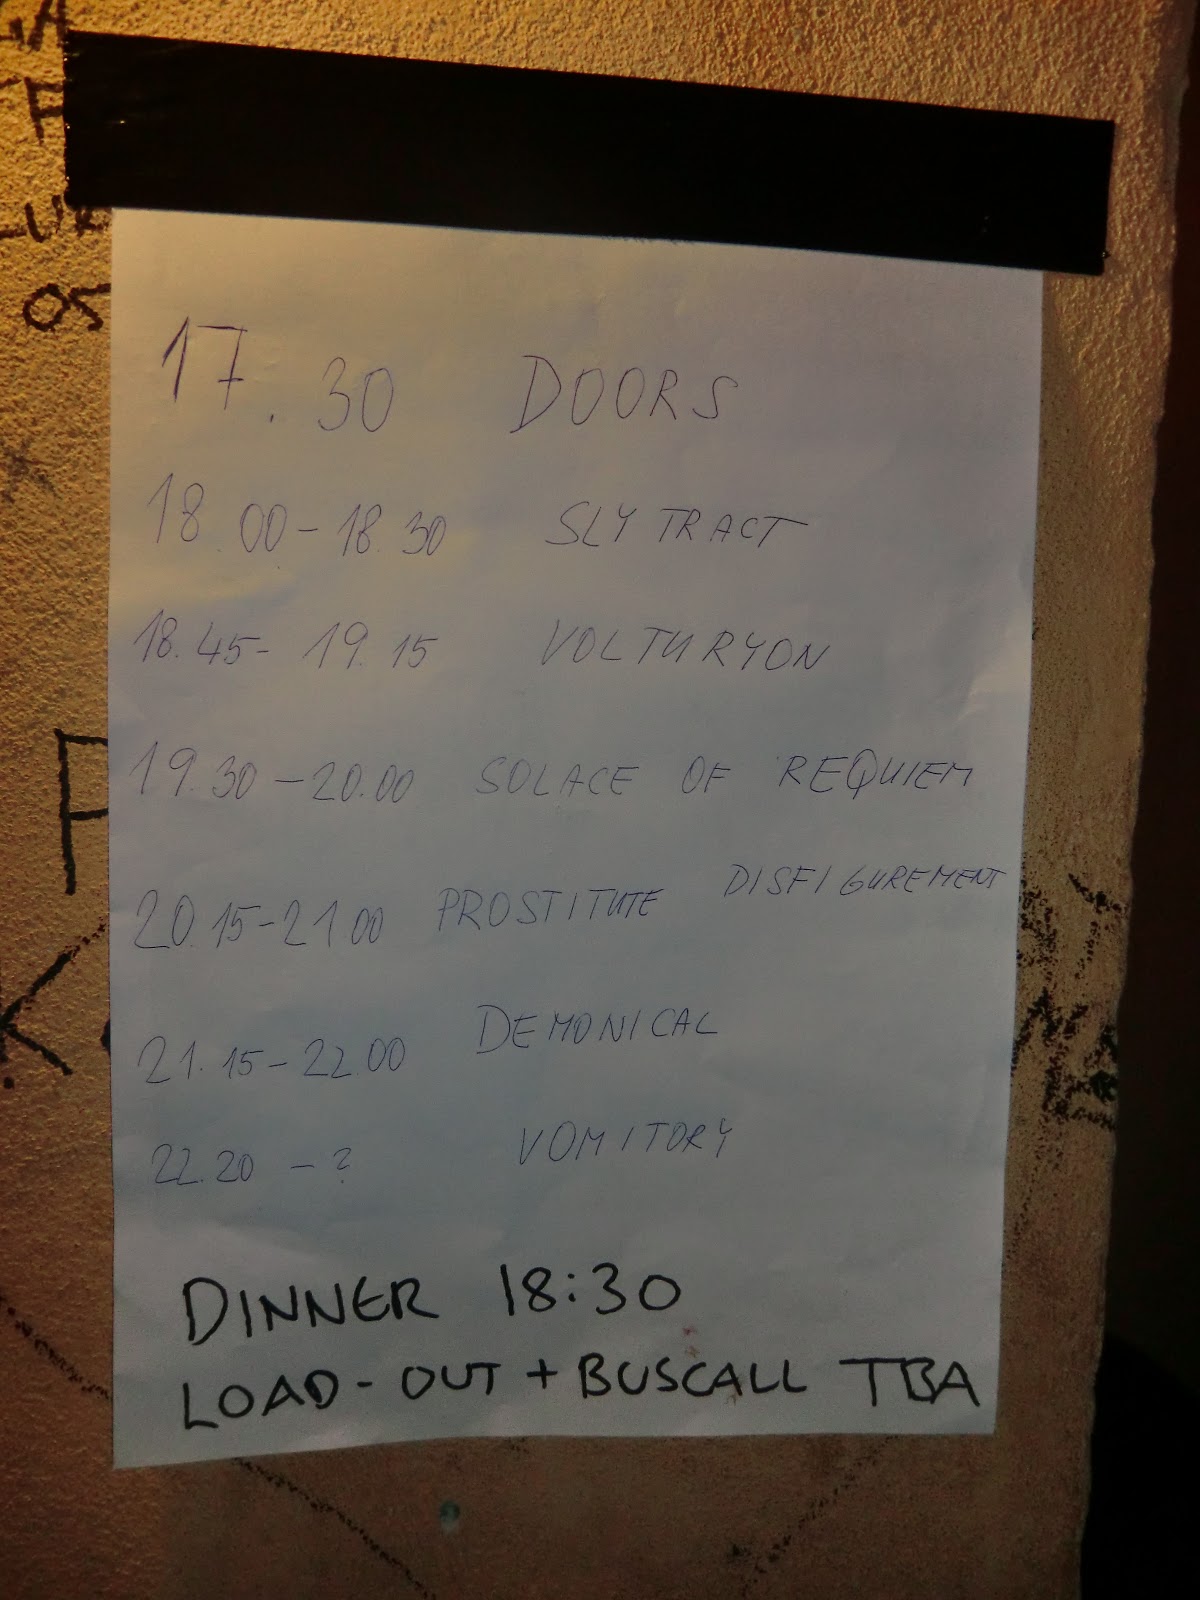 17.30 DOORS
18.00-18.30 SLYTRACT
18.45-19.15 VOLTURYON
19.30-20.00 SOLACE OF REQUIEM
20.15-21.00 PROSTITUTE DISFIGUREMENT
21.15-22.00 DEMONICAL
22.20-? VOMITORY
DINNER 18:30
LOAD-OUT + BUSCALL TBA